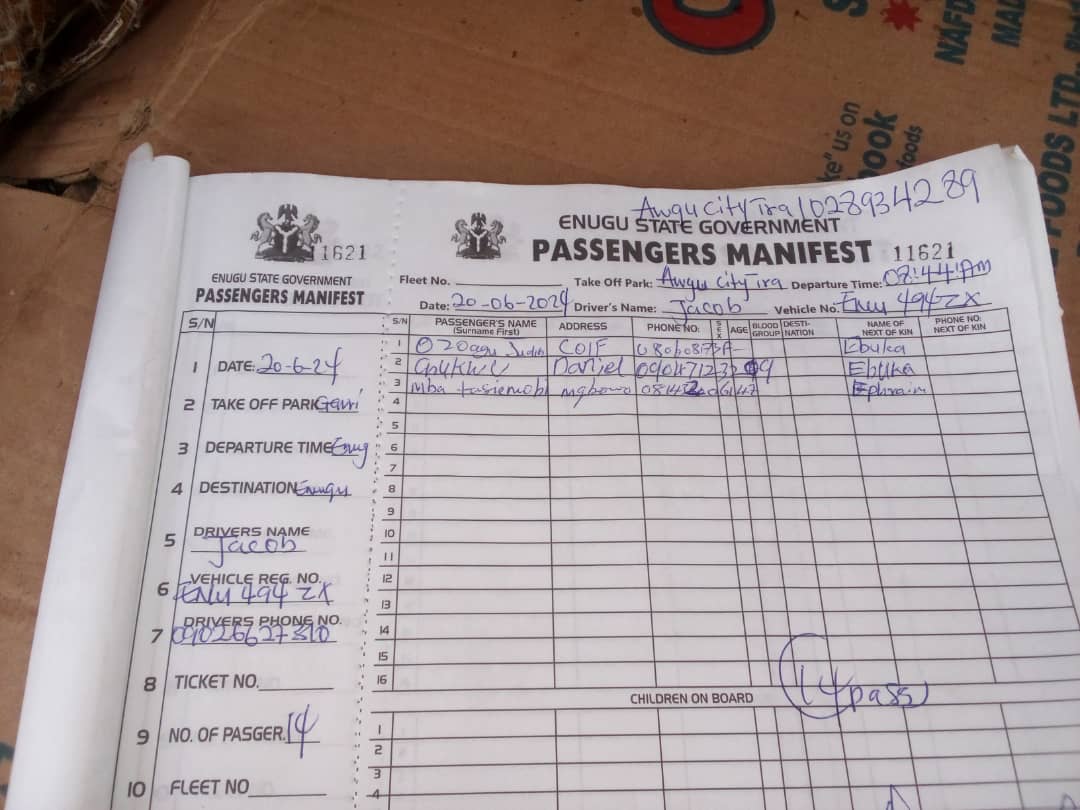 C
NAFD
MAD
FOODS LTD.
ke" us on
ook
foods
Awgu City Tra 1028934289
ENUGU STATE GOVERNMENT
PASSENGERS MANIFEST 11621
Fleet No. Take Off Park: Awgu City Tra Departure Time: 08:44:AM
Date: 20-06-2024 Driver's Name: Jacob Vehicle No. Enu 494 ZX
S/N PASSENGER'S NAME (Surname First) ADDRESS PHONE NO: SEX AGE BLOOD GROUP DESTI-NATION NAME OF NEXT OF KIN PHONE NO: NEXT OF KIN
1 Judith Ebuka
2 Daniel Ebuka
3 mba mgbowo Ephraim
4
5
6
7
8
9
10
11
12
13
14
15
16
14 pass
CHILDREN ON BOARD
1
2
3
4
11621
ENUGU STATE GOVERNMENT
PASSENGERS MANIFEST
S/N
1 DATE: 20-6-24
2 TAKE OFF PARK
3 DEPARTURE TIME Enug
4 DESTINATION Enugu
5 DRIVERS NAME
Jacob
6 VEHICLE REG. NO.
ENU 494 ZX
7 DRIVERS PHONE NO.
8 TICKET NO.
9 NO. OF PASGER. 14
10 FLEET NO